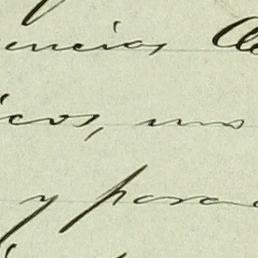 encias de
icos, uno
y para